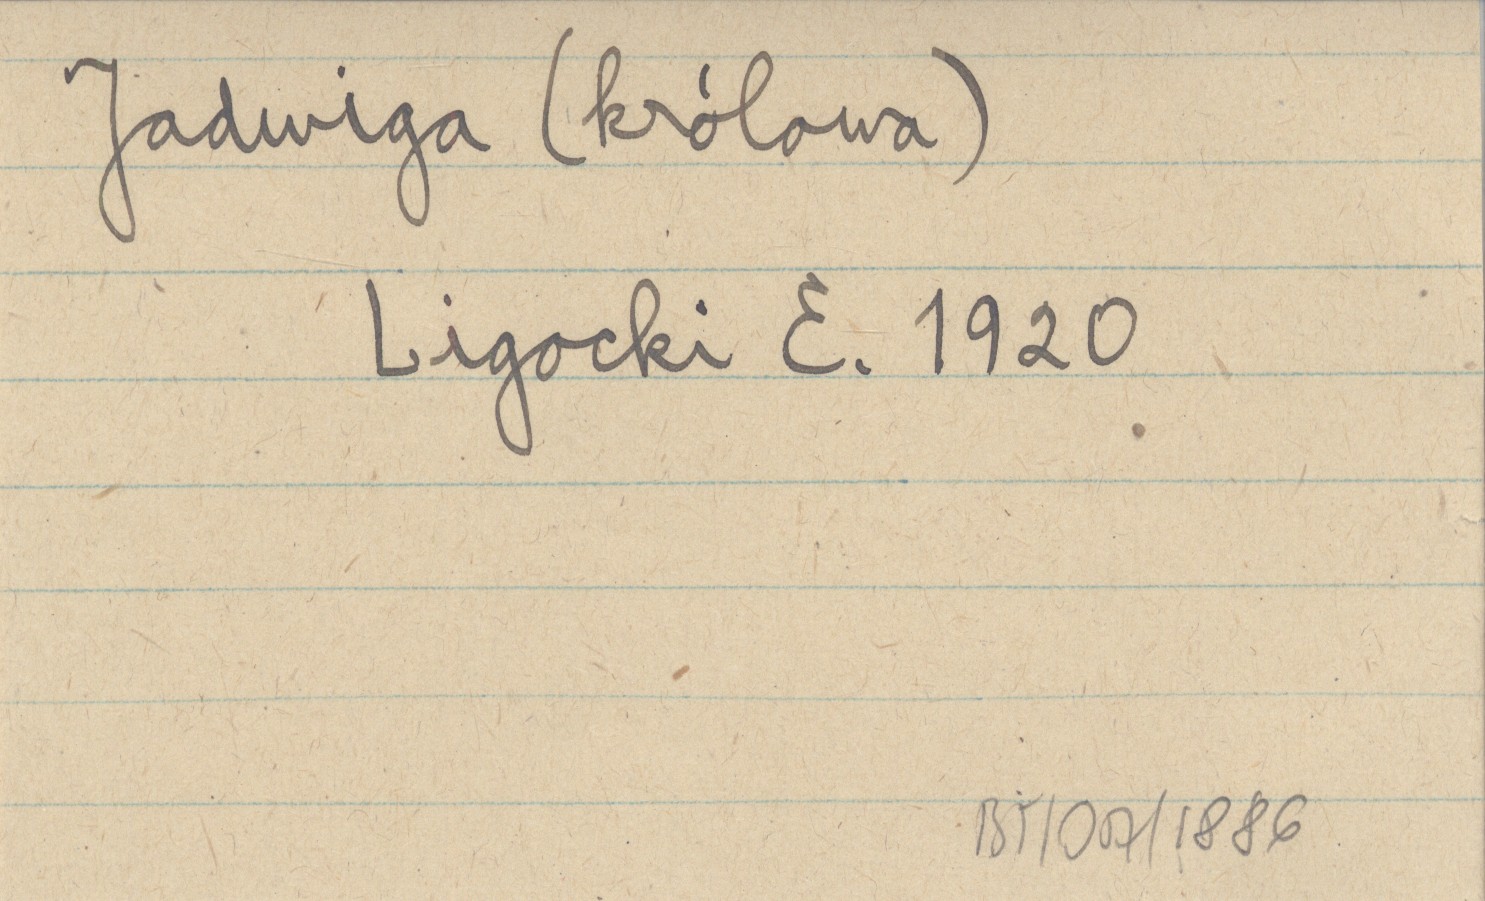 Jadwiga (królowa)
Ligocki E. 1920
1886